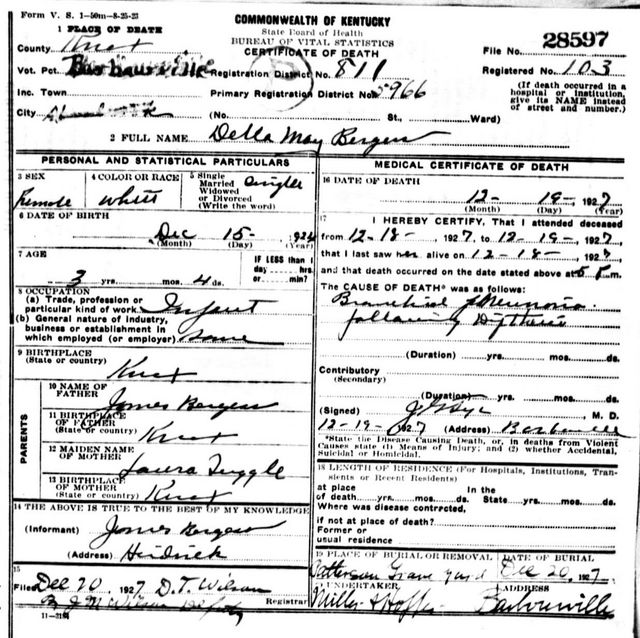 Form V. S. 1-50m-8-25-23
COMMONWEALTH OF KENTUCKY
State Board of Health
BUREAU OF VITAL STATISTICS
CERTIFICATE OF DEATH
1 PLACE OF DEATH
County Knox
File No. 28597
Vot. Pct. Barbourville Registration District No. 811 Registered No. 103
Inc. Town Primary Registration District No. 5966 (If death occurred in a hospital or institution, give its NAME instead of street and number.)
City (No. St., Ward)
2 FULL NAME Della May Bergen
PERSONAL AND STATISTICAL PARTICULARS
3 SEX Female
4 COLOR OR RACE White
5 Single Married Widowed or Divorced (Write the word) Single
6 DATE OF BIRTH
Dec 15- 1924
(Month) (Day) (Year)
7 AGE
3 yrs. mos. 4 ds.
IF LESS than 1 day hrs. or min.?
8 OCCUPATION
(a) Trade, profession or particular kind of work Infant
(b) General nature of industry, business or establishment in which employed (or employer) None
9 BIRTHPLACE
(State or country) Knox
PARENTS
10 NAME OF FATHER James Bergen
11 BIRTHPLACE OF FATHER (State or country) Knox
12 MAIDEN NAME OF MOTHER Laura Tuggle
13 BIRTHPLACE OF MOTHER (State or country) Knox
14 THE ABOVE IS TRUE TO THE BEST OF MY KNOWLEDGE
(Informant) James Bergen
(Address) Heidrick
15
Filed Dec 20, 1927 D.T. Wilson
Registrar
11-3184
MEDICAL CERTIFICATE OF DEATH
16 DATE OF DEATH
12- 19- 1927
(Month) (Day) (Year)
17 I HEREBY CERTIFY, That I attended deceased
from 12-18- 1927, to 12-19- 1927,
that I last saw her alive on 12-18- 1927
and that death occurred on the date stated above at 5 P.m.
The CAUSE OF DEATH* was as follows:
Bronchial Pneumonia
following
(Duration) yrs. mos. ds.
Contributory
(Secondary)
(Duration) yrs. mos. ds.
(Signed) M. D.
12-19- 1927 (Address)
*State the Disease Causing Death, or, in deaths from Violent Causes state (1) Means of Injury; and (2) whether Accidental, Suicidal or Homicidal.
18 LENGTH OF RESIDENCE (For Hospitals, Institutions, Transients or Recent Residents)
at place of death yrs. mos. ds. In the State yrs. mos. ds.
Where was disease contracted,
if not at place of death?
Former or
usual residence
19 PLACE OF BURIAL OR REMOVAL DATE OF BURIAL
Grave yard Dec 20, 1927
20 UNDERTAKER ADDRESS
Miller Barbourville